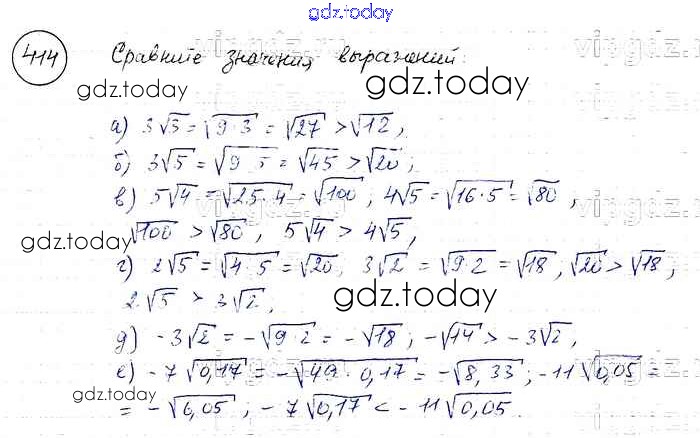 gdz.today
414 Сравните значения выражений:
gdz.today gdz.today
а) 3√3 = √9·3 = √27 > √12,
б) 3√5 = √9·5 = √45 > √20;
в) 5√4 = √25·4 = √100; 4√5 = √16·5 = √80,
√100 > √80, 5√4 > 4√5,
gdz.today
г) 2√5 = √4·5 = √20, 3√2 = √9·2 = √18, √20 > √18,
2√5 > 3√2,
gdz.today
д) -3√2 = -√9·2 = -√18; -√14 > -3√2,
е) -7√0,17 = -√49·0,17 = -√8,33; -11√0,05 =
gdz.today gdz.today
= -√6,05; -7√0,17 < -11√0,05